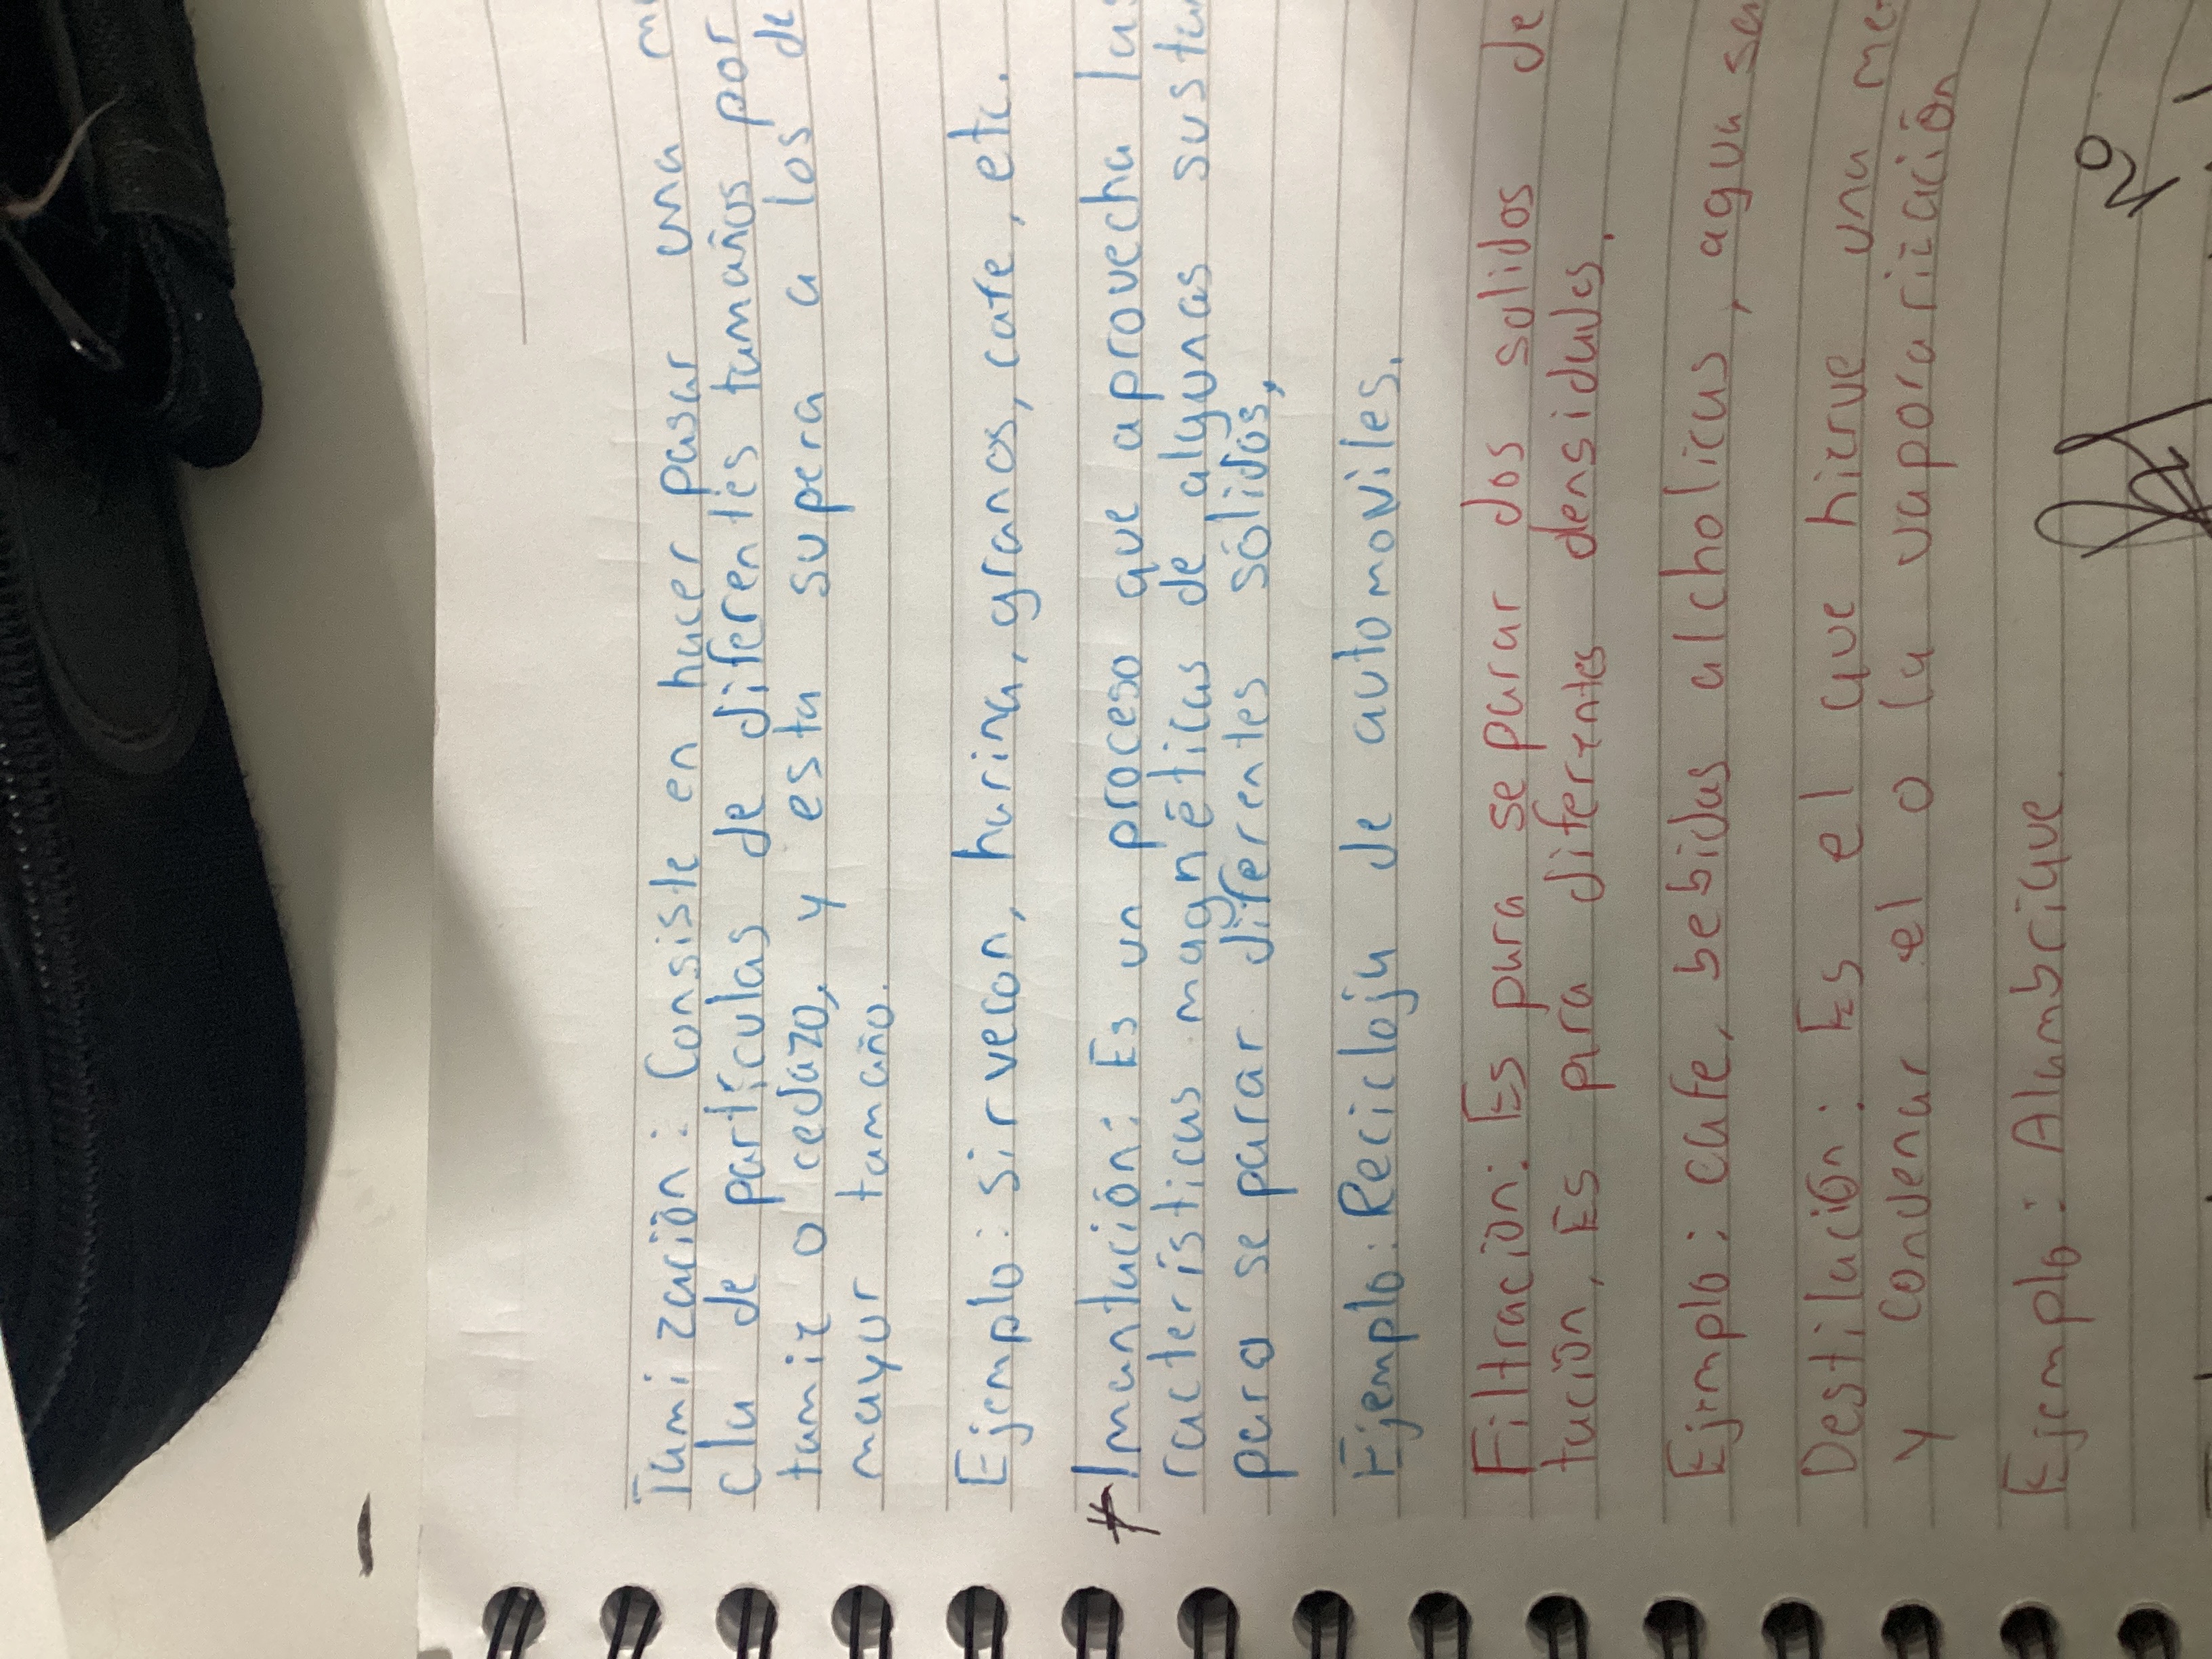 Tamización: Consiste en hacer pasar una m
cla de partículas de diferentes tamaños por
tamiz o cedazo, y esta supera a los de
mayor tamaño.
Ejemplo: sirvecon, harina, granos, cafe, etc.
* Imantación: Es un proceso que aprovecha las
racterísticas magnéticas de algunas sustan
para separar diferentes sólidos,
Ejemplo: Recicloja de automoviles.
Filtración: Es para separar dos solidos de
tación, Es para diferentes densidades.
Ejemplo: cafe, bebidas alcholicas, agua sa
Destilación: Es el que hierve una mez
y convenar el o la vaporarización
Ejemplo: Alambrique